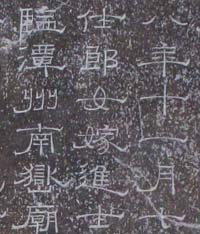 八年十一月七
仕郎女嫁進士
監潭州南嶽廟